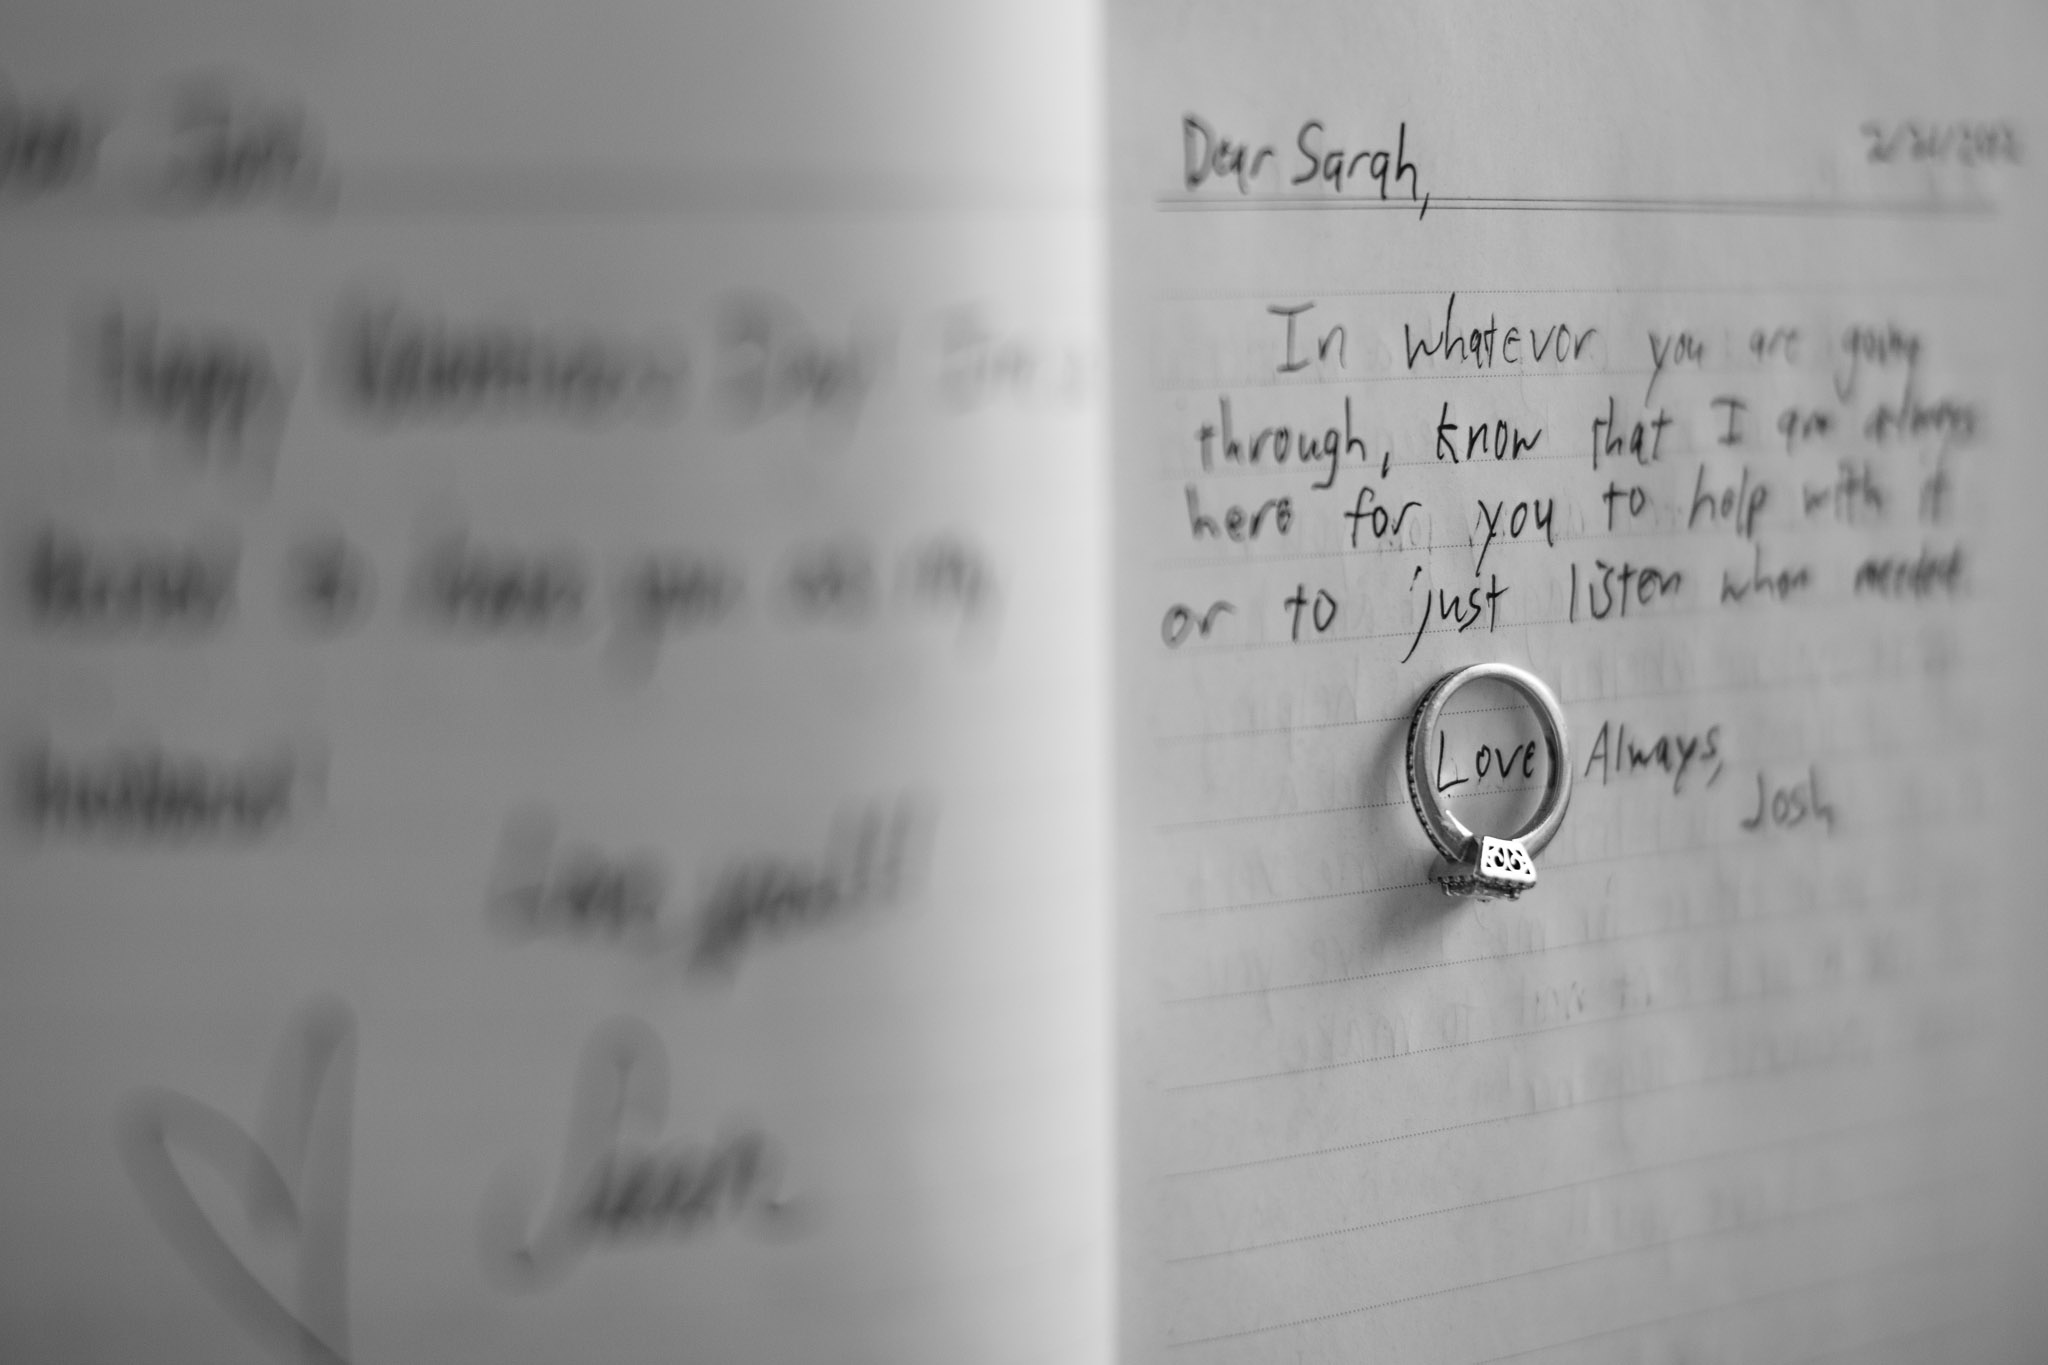 Happy Valentines Day
to have you as my
husband!
Love you!!
Dear Sarah,
In whatevor you are going
through, know that I am always
here for you to help with it
or to just listen when needed
Love Always,
Josh